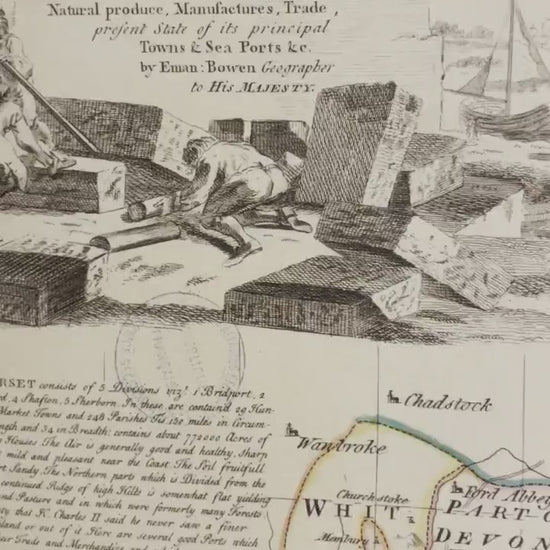 Natural produce, Manufactures, Trade,
present State of its principal
Towns & Sea Ports &c.
by Eman: Bowen Geographer
to His MAJESTY.
RSET consists of 5 Divisions viz! 1 Bridport, 2
d, 4 Shafton, 5 Sherborn. In these are contain'd 29 Hun-
Market Towns and 248 Parishes Tis 120 miles in Circum-
ngth and 34 in Breadth: contains about 772000 Acres of
Houses The Air is generally good and healthy, sharp
mild and pleasant near the Coast. The Soil fruitfull
rt Sandy. The Northern parts which is Divided from the
continued Ridge of high Hills is somewhat flat yielding
nd Pasture and in which were formerly many Forests
ty that K. Charles II said he never saw a finer
land or out of it Here are several good Ports which
ur Trade and Merchandize and
Chadstock
Wanbroke
Church stoke
Ford Abbey
WHIT
PART O
Membury
DEVON